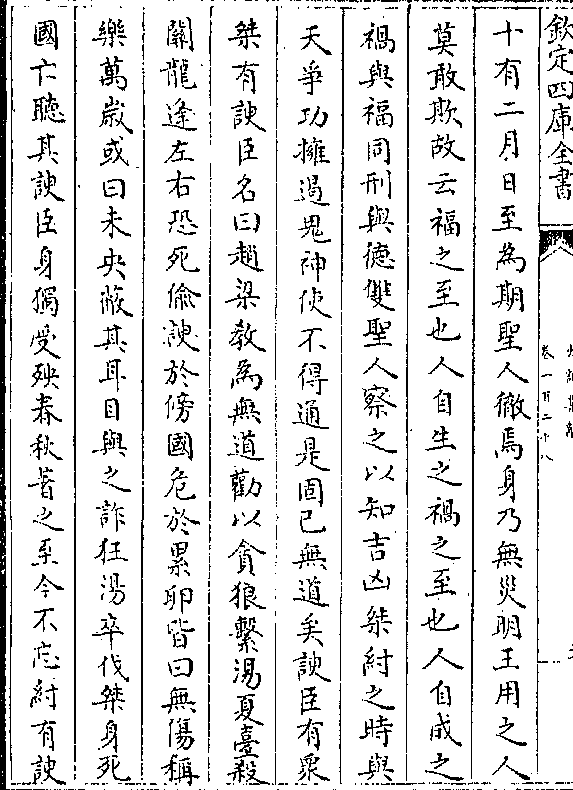 欽定四庫全書
卷一百二十八
十有二月日至為期聖人徹焉身乃無災明王用之人
莫敢欺故云福之至也人自生之禍之至也人自成之
禍與福同刑與德雙聖人察之以知吉凶桀紂之時與
天爭功擁遏鬼神使不得通是固已無道矣諛臣有衆
桀有諛臣名曰趙梁教為無道勸以貪狼繫湯夏臺殺
關龍逢左右恐死偷諛於傍國危於累卵皆曰無傷稱
樂萬嵗或曰未央蔽其耳目與之詐狂湯卒伐桀身死
國亡聽其諛臣身獨受殃春秋著之至今不忘紂有諛